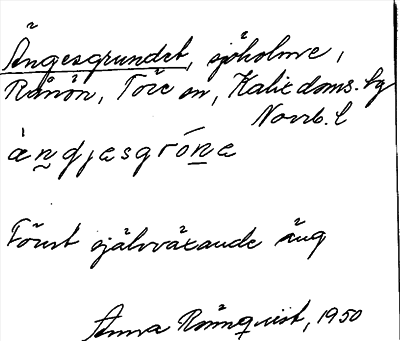 Ängesgrundet, sjöholme,
Rånön, Töre sn, Kalix doms. hg
Norrb. l
àn̲djesgrón̲e
Förut självväxande äng
Anna Rönnqvist, 1950